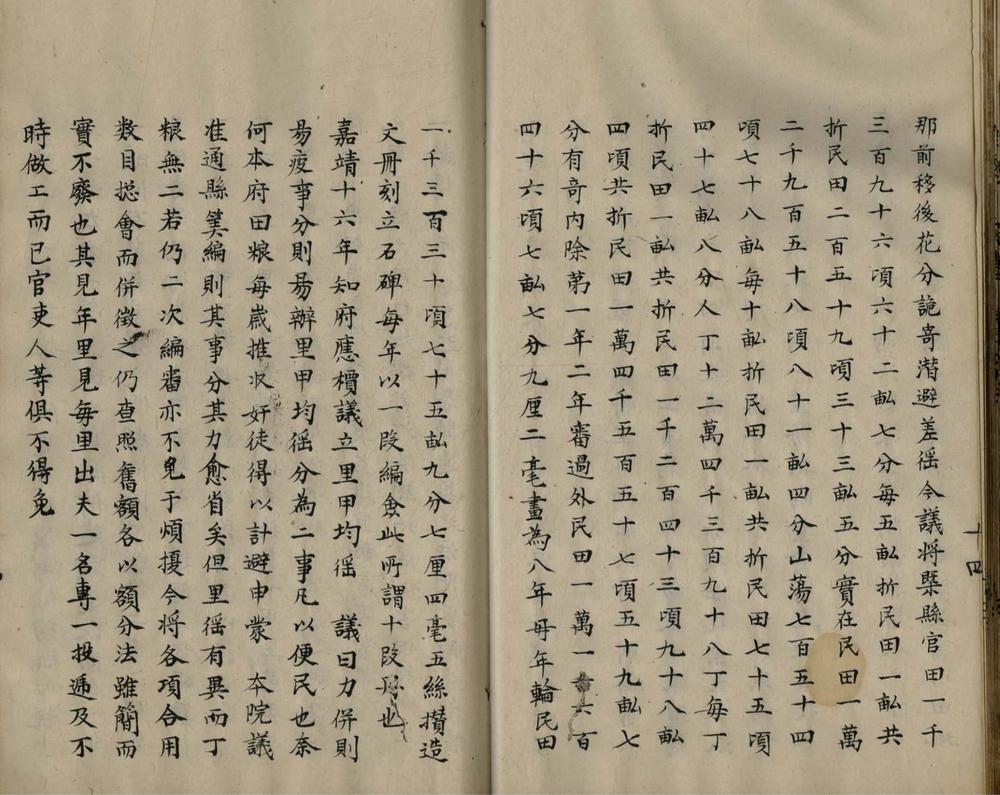 那前移後花分詭寄潛避差徭今議將槩縣官田一千
三百九十六頃六十二畆七分每五畆折民田一畆共
折民田二百五十九頃三十三畆五分實在民田一萬
二千九百五十八頃八十一畆四分山蕩七百五十四
頃七十八畆每十畆折民田一畆共折民田七十五頃
四十七畆八分人丁十二萬四千三百九十八丁每丁
折民田一畆共折民田一千二百四十三頃九十八畆
四頃共折民田一萬四千五百五十七頃五十九畆七
分有奇內除第一年二年審過外民田一萬一 六百
四十六頃七畆七分九厘二毫畫為八年毎年輪民田
一千三百三十頃七十五畆九分七厘四毫五絲攢造
文冊刻立石碑每年以一段編僉此所謂十段 也
嘉靖十六年知府應檟議立里甲均徭 議曰力併則
昜疲事分則昜辦里甲均徭分為二事凡以便民也奈
何本府田粮每歳推收奸徒得以計避申蒙 本院議
准通縣筭編則其事分其力愈省矣但里徭有異而丁
粮無二若仍二次編審亦不免于煩擾今將各項合用
数目揔會而併徵之仍查照舊額各以額分法雖簡而
實不廢也其見年里見每里出夫一名專一投遞及不
時做工而已官吏人等俱不得免
十四